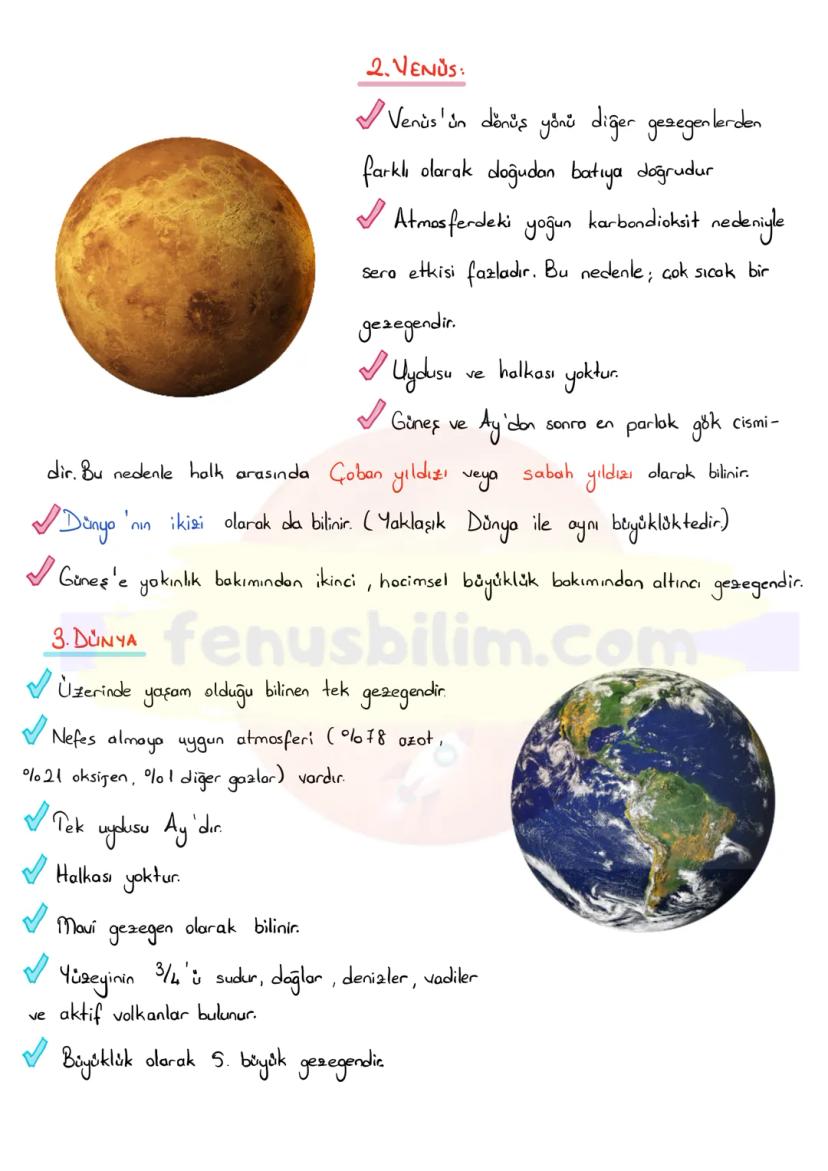 2. VENÜS:
Venüs'ün dönüş yönü diğer gezegenlerden
farklı olarak doğudan batıya doğrudur
Atmosferdeki yoğun karbondioksit nedeniyle
sera etkisi fazladır. Bu nedenle; çok sıcak bir
gezegendir.
Uydusu ve halkası yoktur.
Güneş ve Ay'dan sonra en parlak gök cismi-
dir. Bu nedenle halk arasında Çoban yıldızı veya sabah yıldızı olarak bilinir.
Dünya'nın ikizi olarak da bilinir. (Yaklaşık Dünya ile aynı büyüklüktedir.)
Güneş'e yakınlık bakımından ikinci, hacimsel büyüklük bakımından altıncı gezegendir.
fenusbilim.com
3. DÜNYA
Üzerinde yaşam olduğu bilinen tek gezegendir.
Nefes almaya uygun atmosferi (%78 azot,
%21 oksijen, %1 diğer gazlar) vardır.
Tek uydusu Ay'dır.
Halkası yoktur.
Mavi gezegen olarak bilinir.
Yüzeyinin 3/4'ü sudur, dağlar, denizler, vadiler
ve aktif volkanlar bulunur.
Büyüklük olarak 5. büyük gezegendir.